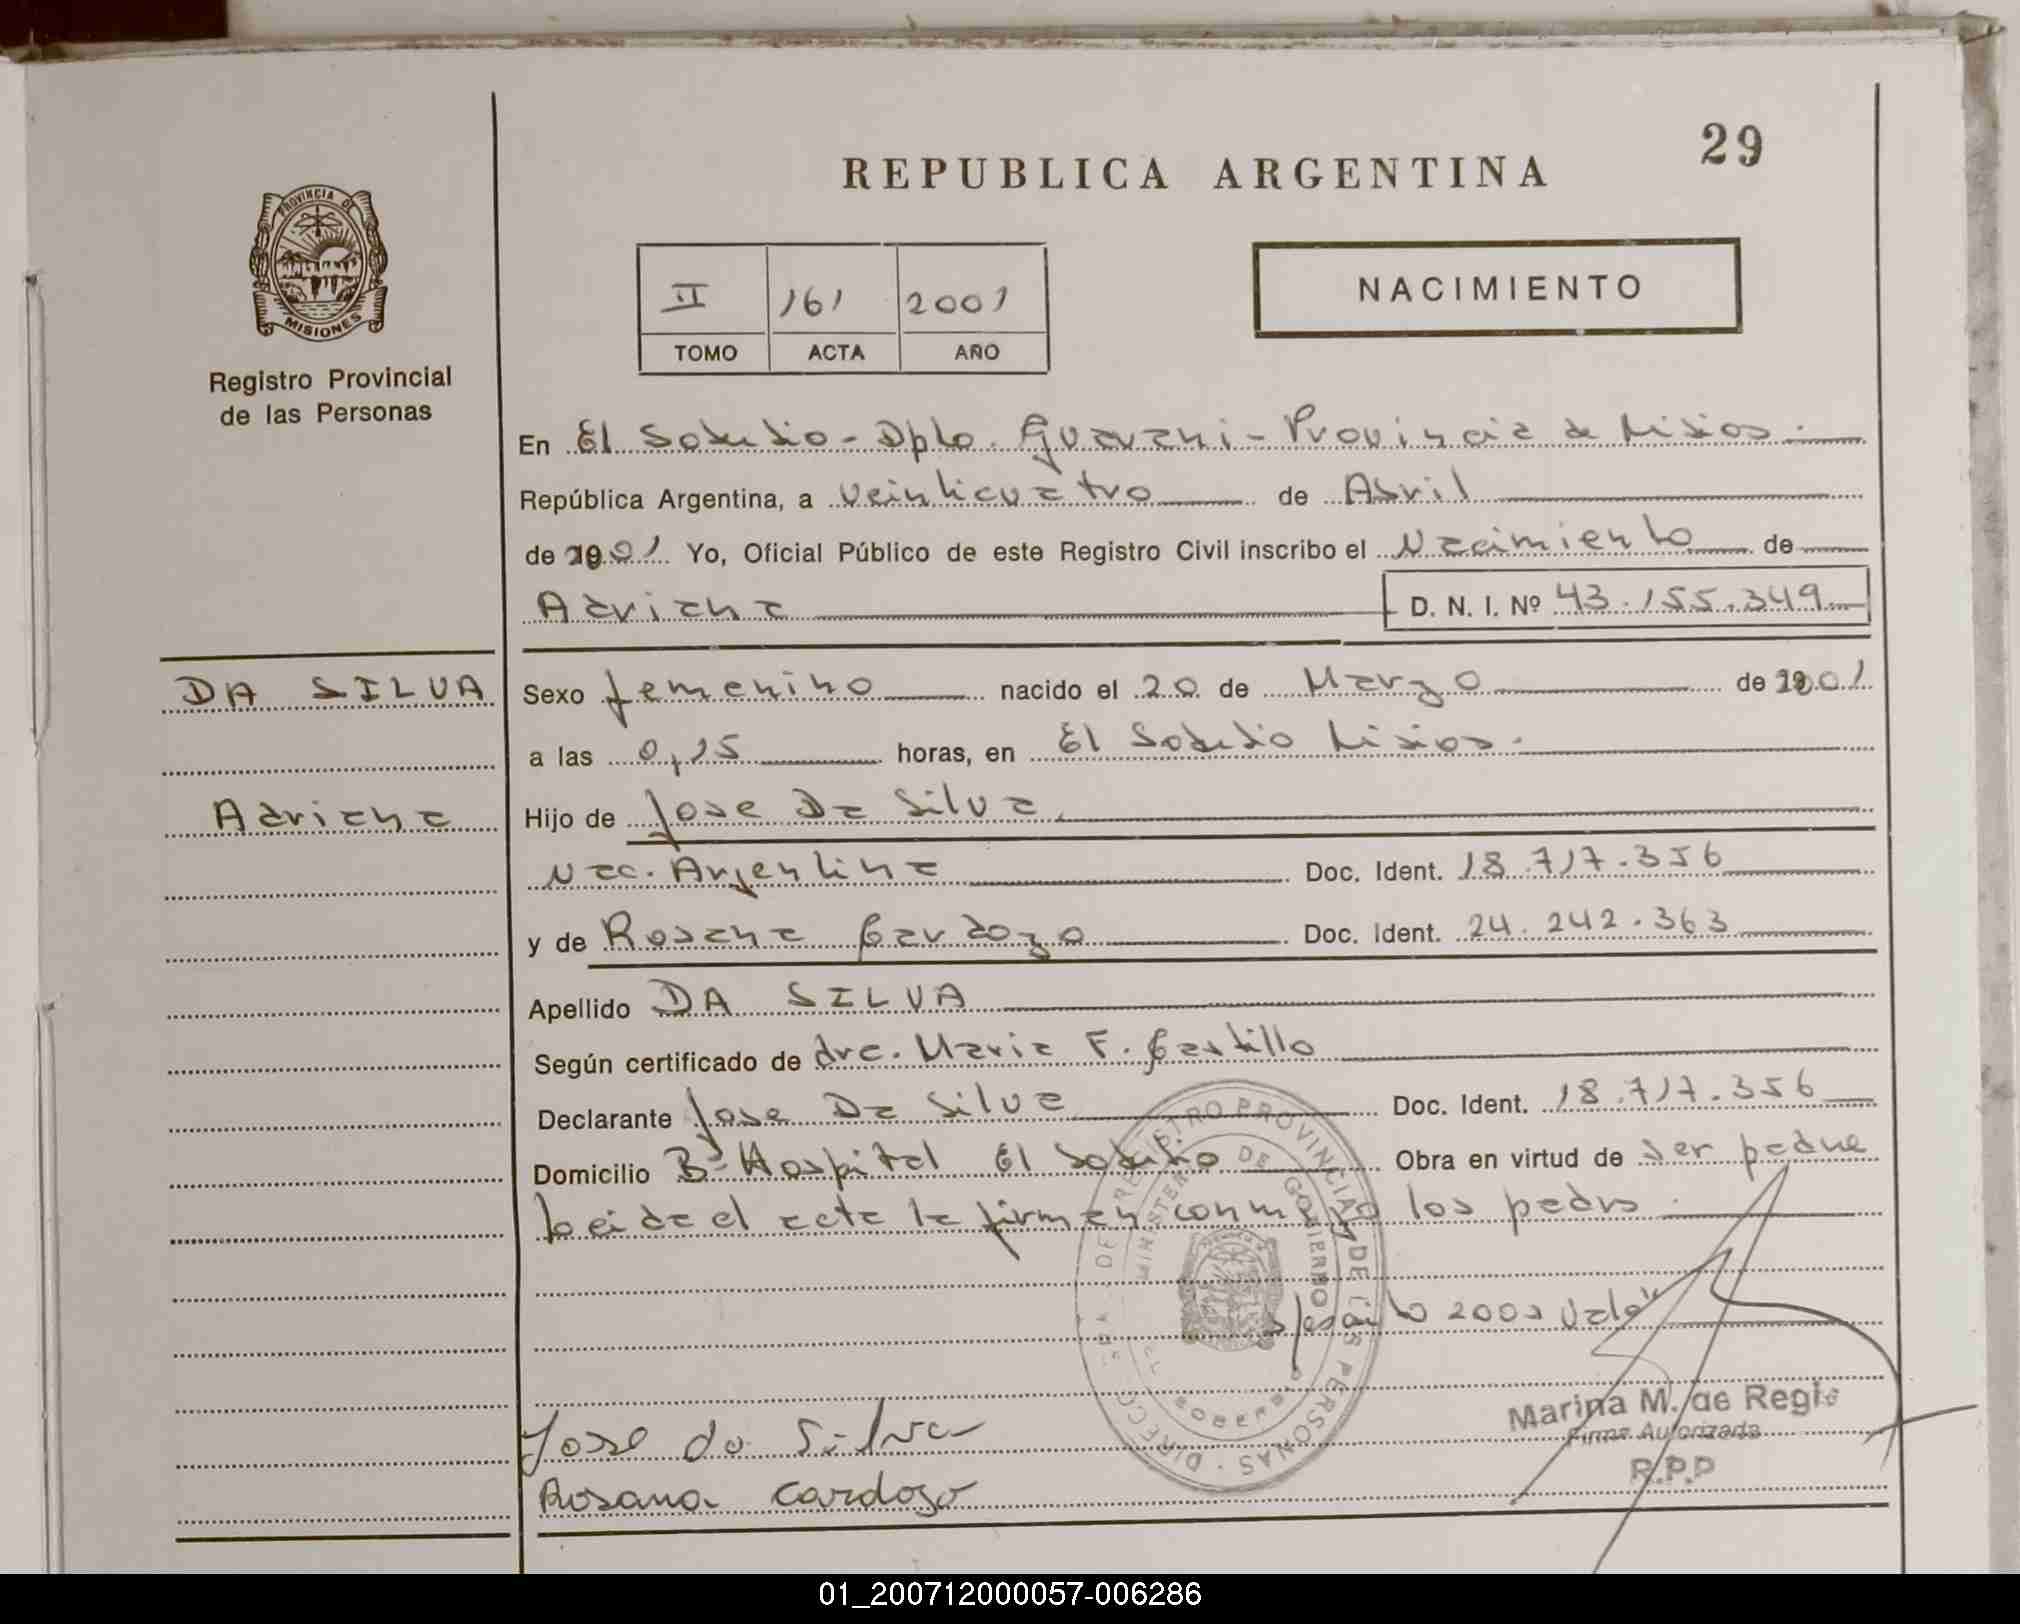 29
REPUBLICA ARGENTINA
PROVINCIA DE
MISIONES
Registro Provincial
de las Personas
II 161 2001
TOMO ACTA AÑO
NACIMIENTO
En El Soberbio - Dpto. Guarani - Provincia de Misiones.
República Argentina, a veinticuatro de Abril
de 2001 Yo, Oficial Público de este Registro Civil inscribo el Nacimiento de
Adriana D. N. I. Nº 43.155.349
DA SILVA
Adriana
Sexo femenino nacido el 20 de Marzo de 2001
a las 0,15 horas, en El Soberbio Misiones.
Hijo de Jose Da Silva
Nac. Argentina Doc. Ident. 18.717.356
y de Rosana Cardozo Doc. Ident. 24.242.363
Apellido DA SILVA
Según certificado de dra. Maria F. Castillo
Declarante Jose Da Silva Doc. Ident. 18.717.356
Domicilio Bº Hospital El Soberbio Obra en virtud de ser padre
Leida el acta la firman conmigo los padres.
2001 Vale
DIRECC. GRAL. DE REGISTRO PROVINCIAL DE LAS PERSONAS
MINISTERIO DE GOBIERNO
Jose da Silva
Rosana Cardozo
Marina M. de Regis
Firma Autorizada
R.P.P
01_200712000057-006286